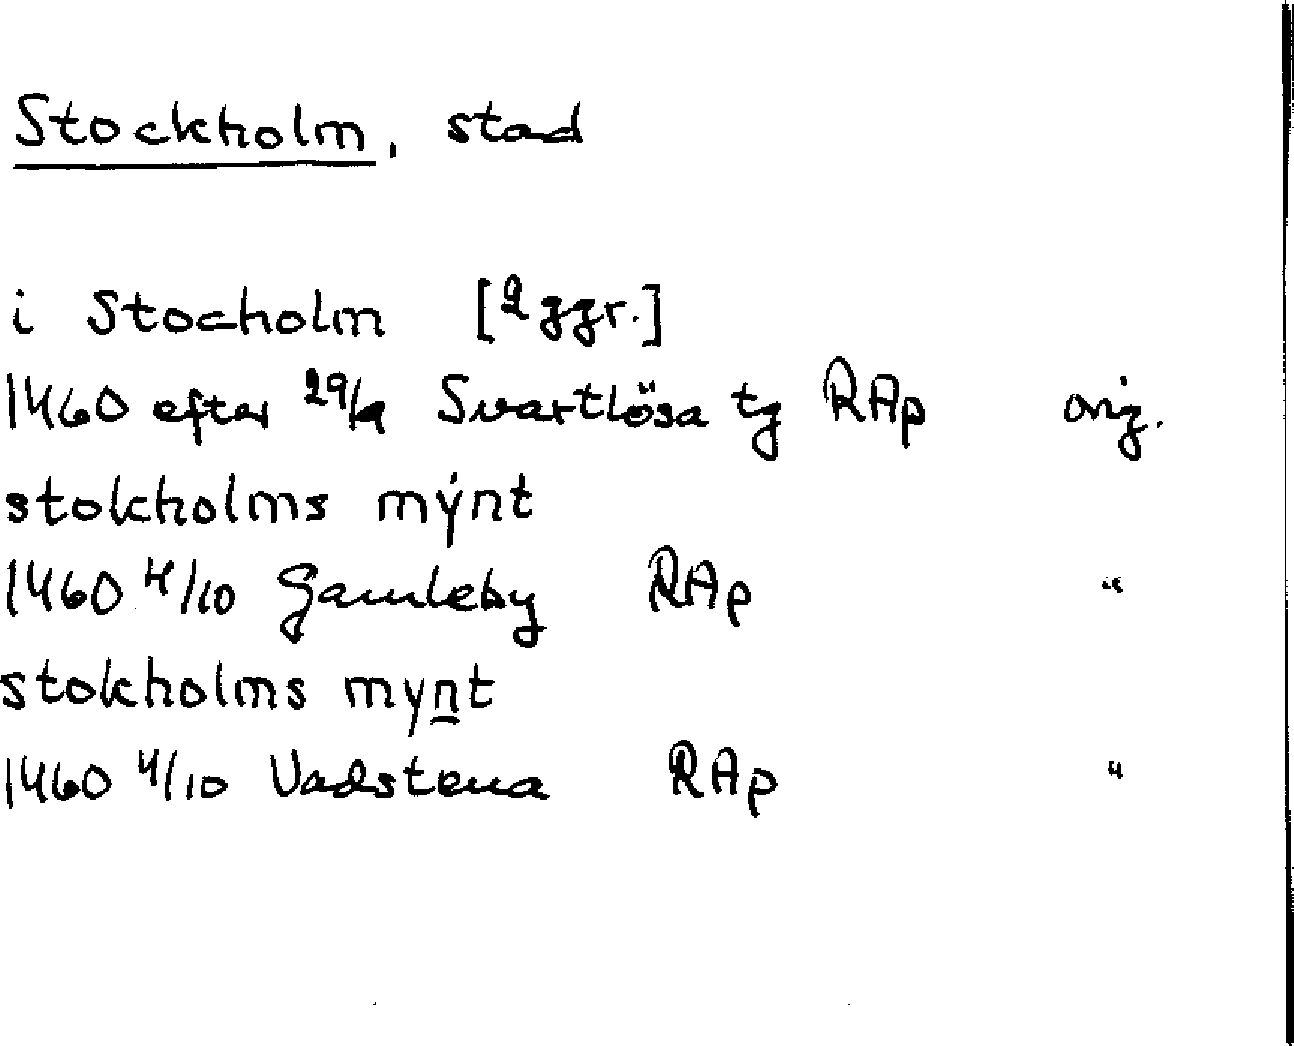 Stockholm, stad
i Stocholm [2 ggr.]
1460 efter 29/9 Svartlösa tg RAp orig.
stokholms mẏnt
1460 4/10 Gamleby RAp "
stokholms myn̲t
1460 4/10 Vadstena RAp "